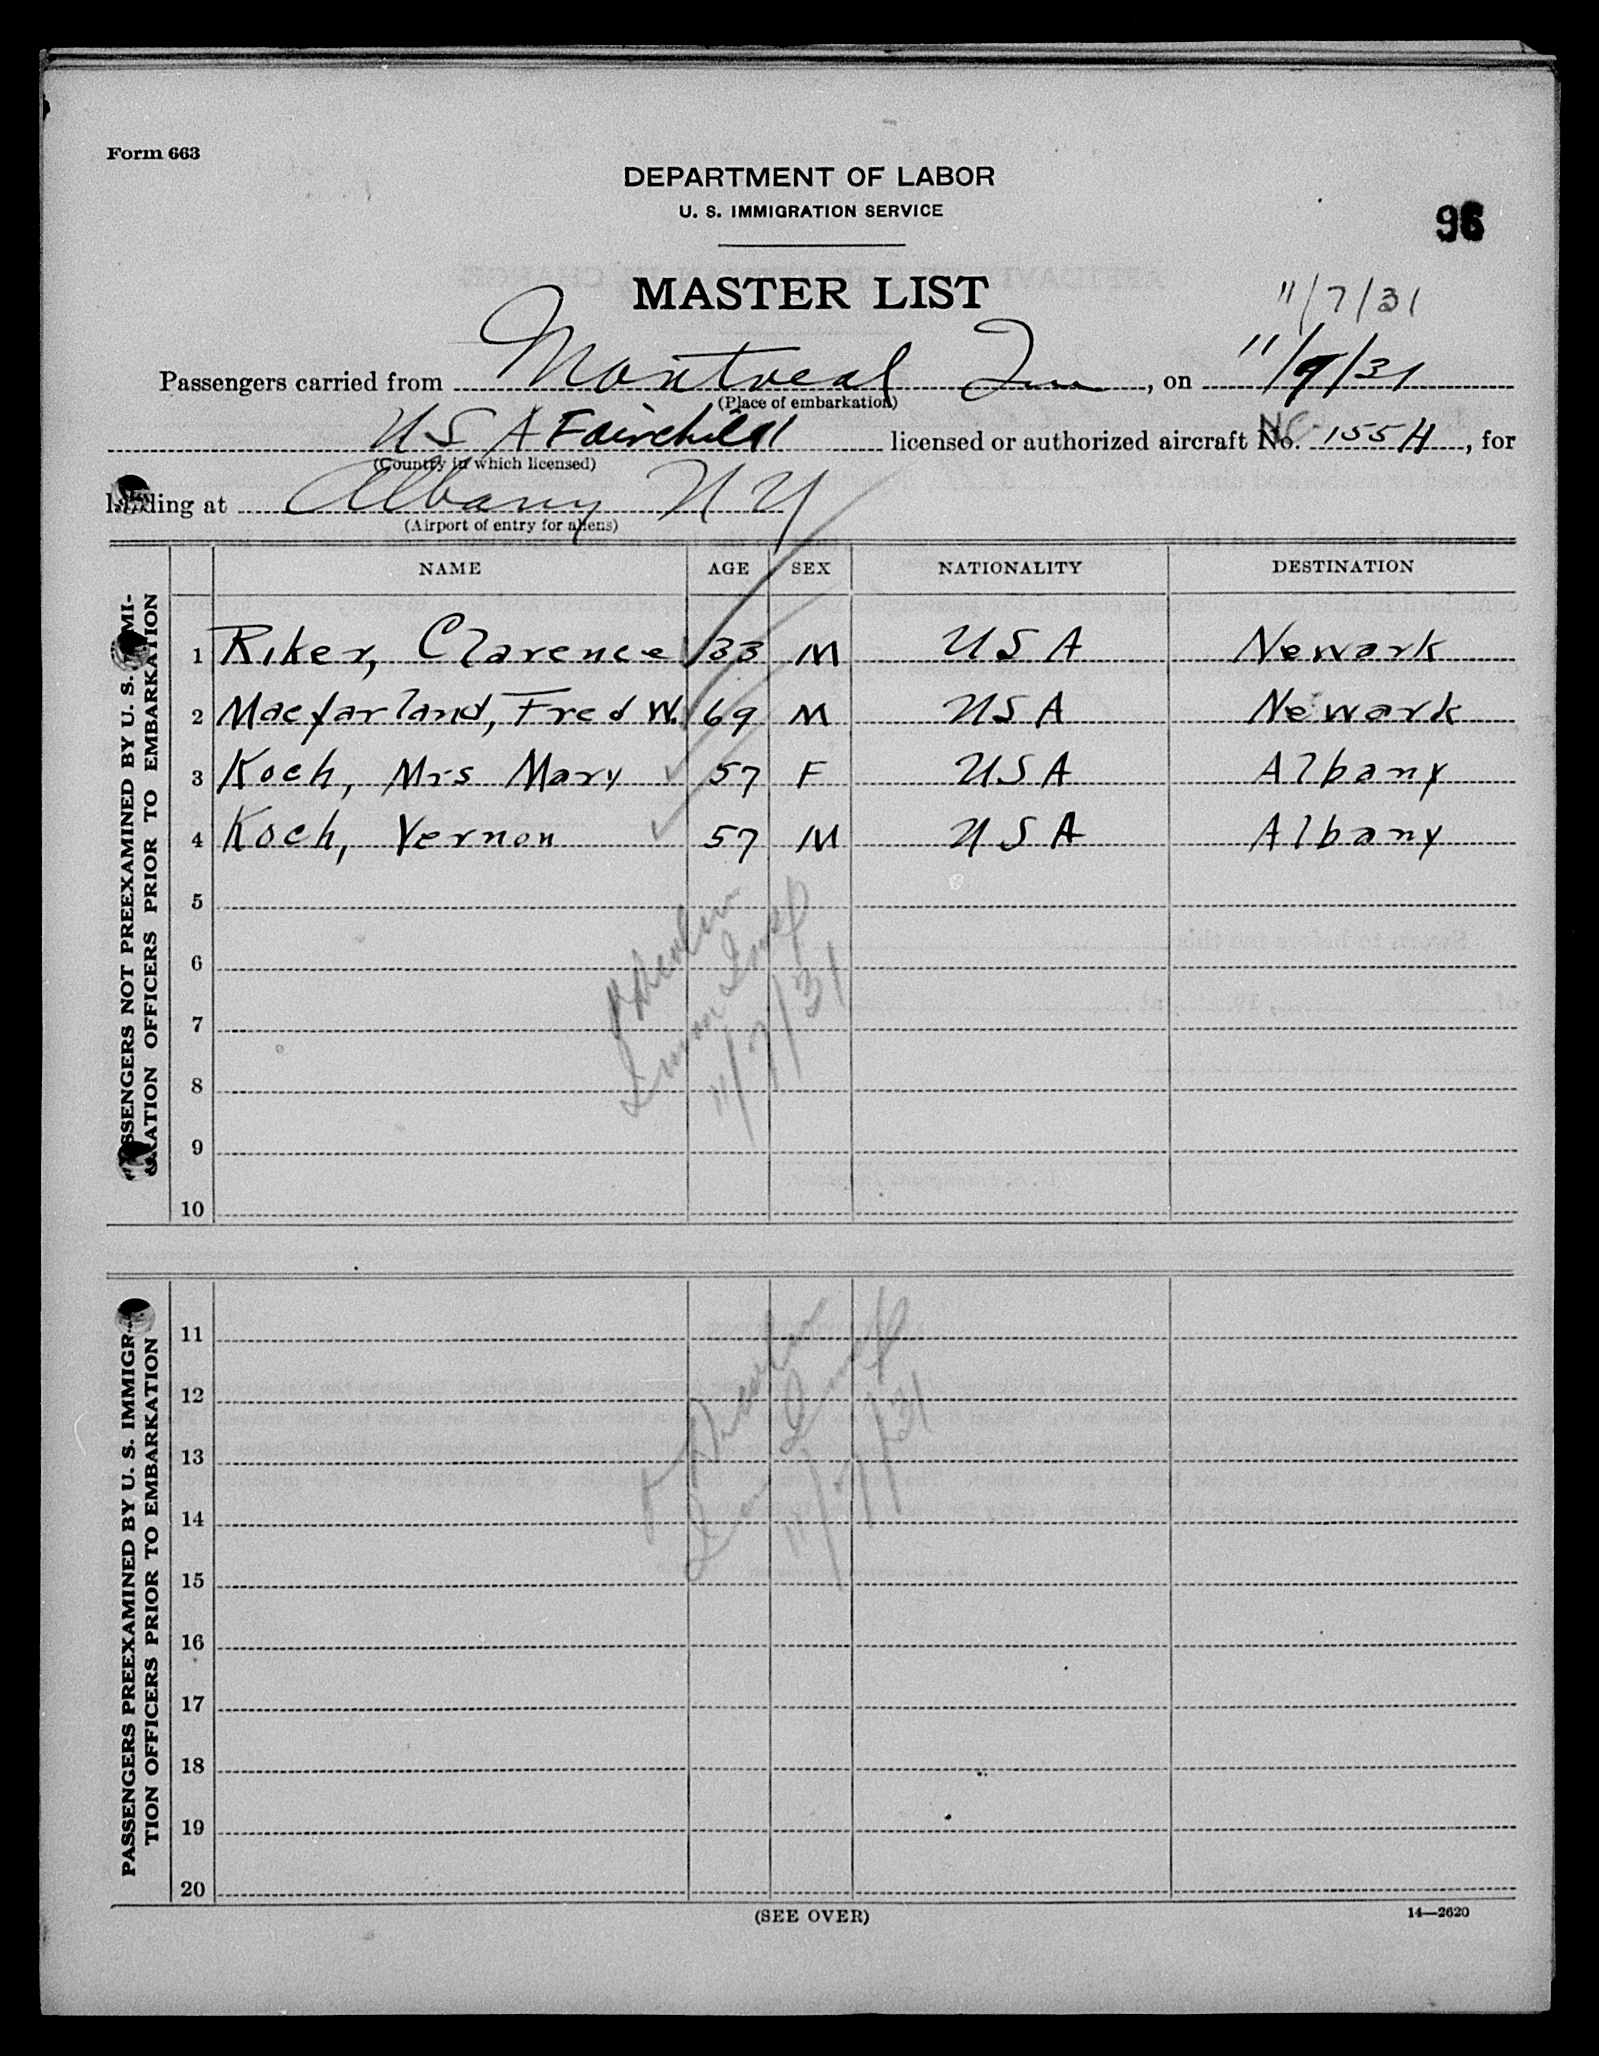 Form 663
DEPARTMENT OF LABOR
U. S. IMMIGRATION SERVICE
96
MASTER LIST
11/7/31
Passengers carried from Montreal Que, on 11/9/31
(Place of embarkation)
U S A Fairchild licensed or authorized aircraft No. NC 155H, for
(Country in which licensed)
landing at Albany N Y
(Airport of entry for aliens)
NAME AGE SEX NATIONALITY DESTINATION
PASSENGERS NOT PREEXAMINED BY U. S. IMMI-
GRATION OFFICERS PRIOR TO EMBARKATION
1 Riker, Clarence 33 M U S A Newark
2 Macfarland, Fred W. 69 M U S A Newark
3 Koch, Mrs Mary 57 F U S A Albany
4 Koch, Vernon 57 M U S A Albany
5
6
7
8
9
10
Imm Insp
11/7/31
PASSENGERS PREEXAMINED BY U. S. IMMIGRA-
TION OFFICERS PRIOR TO EMBARKATION
11
12
13
14
15
16
17
18
19
20
Imm Insp
11/7/31
(SEE OVER)
14—2620